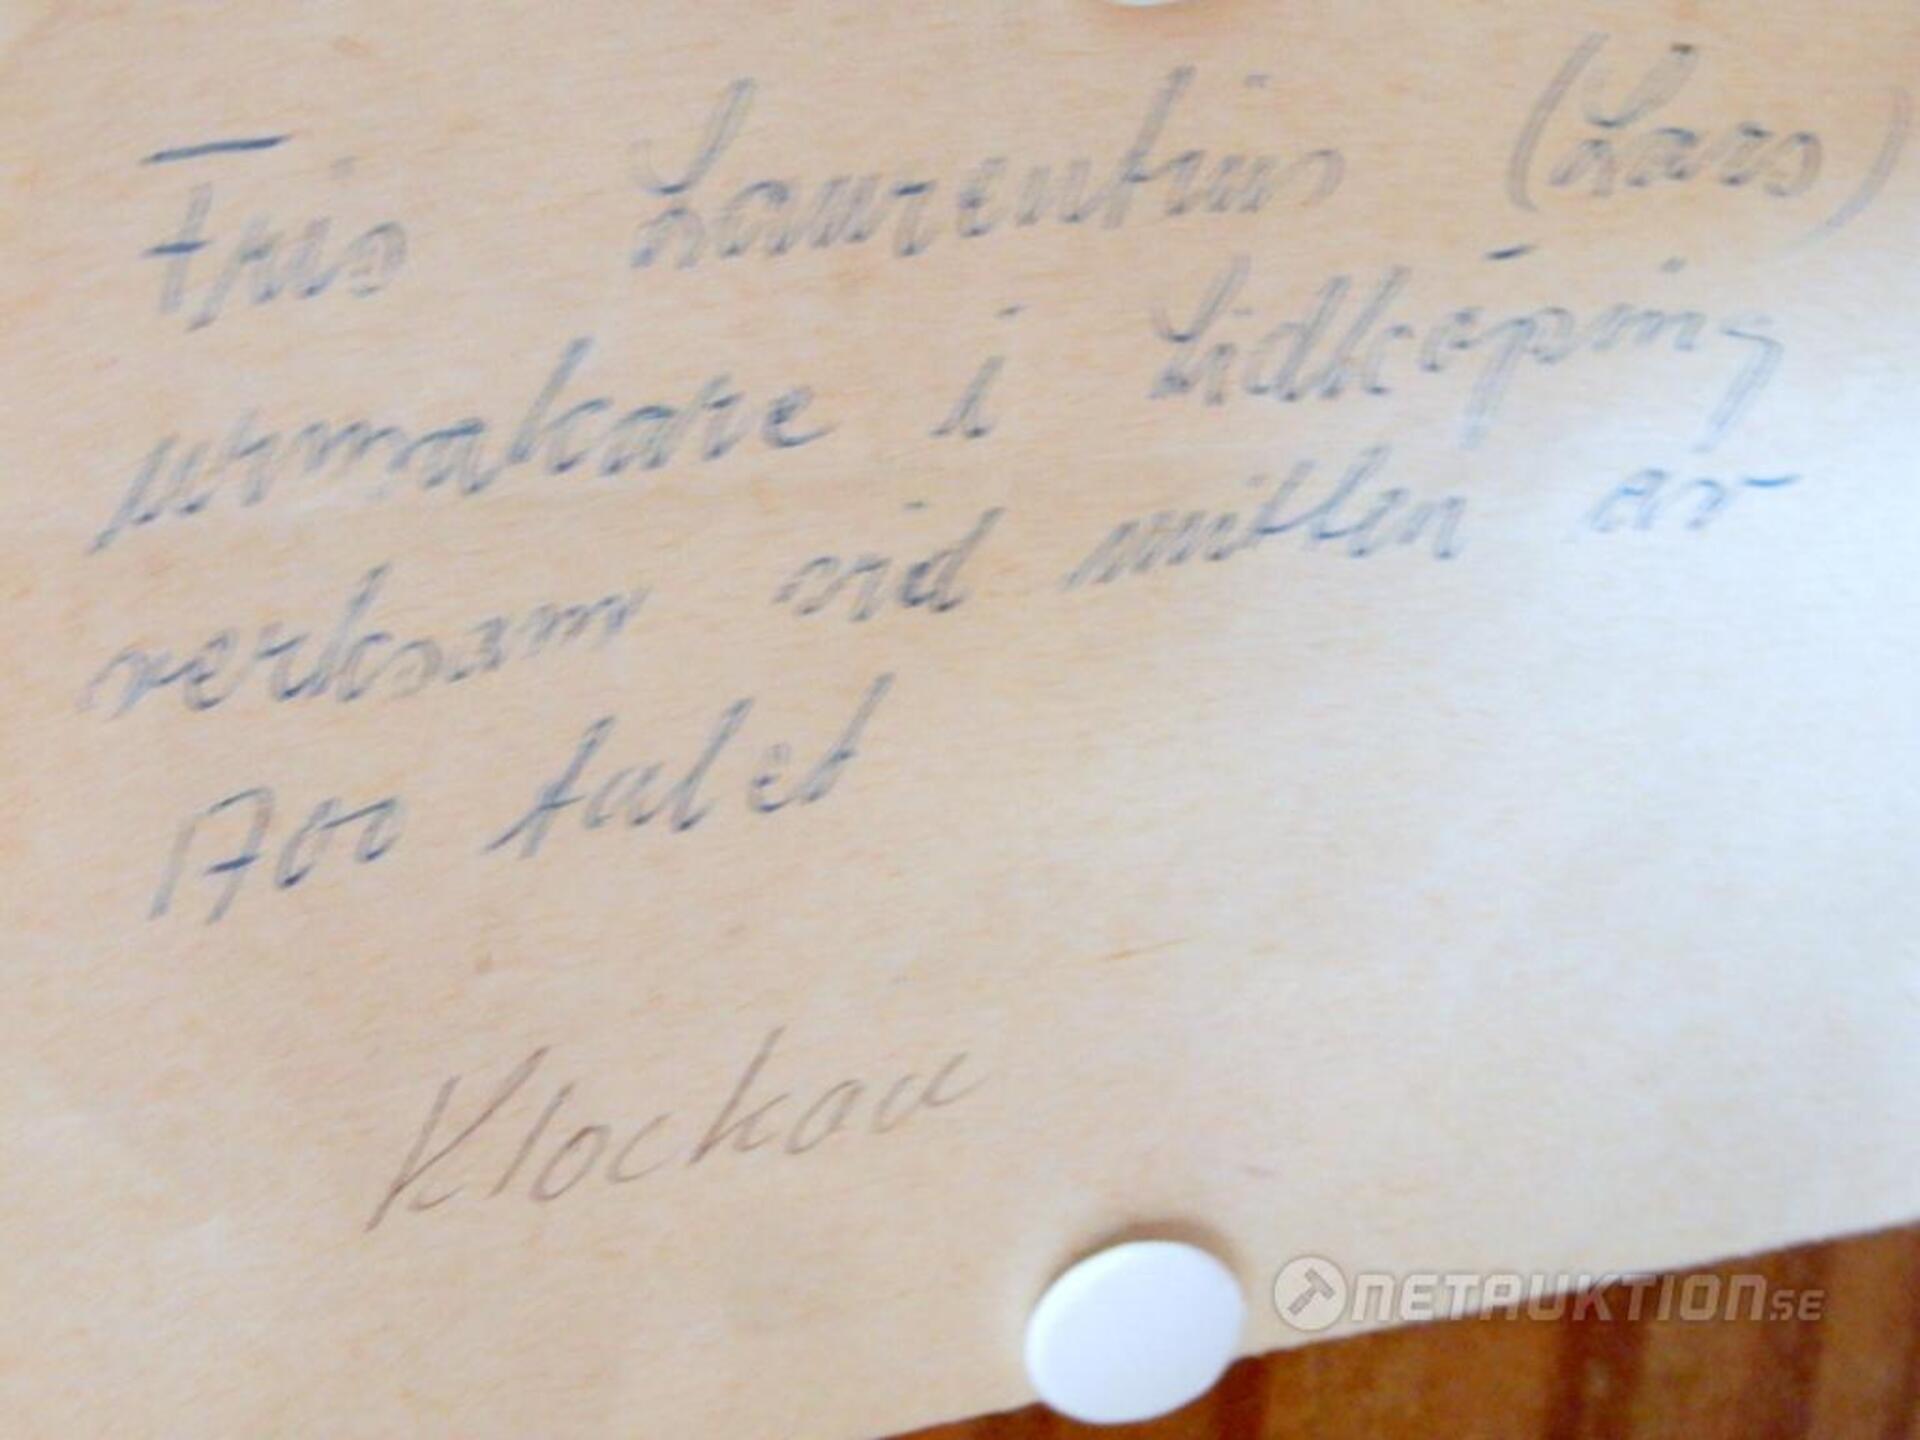 Fris Laurentius (Lars)
urmakare i Lidköping
verksam vid mitten av
1700 talet
Klockau
NETAUKTION.SE